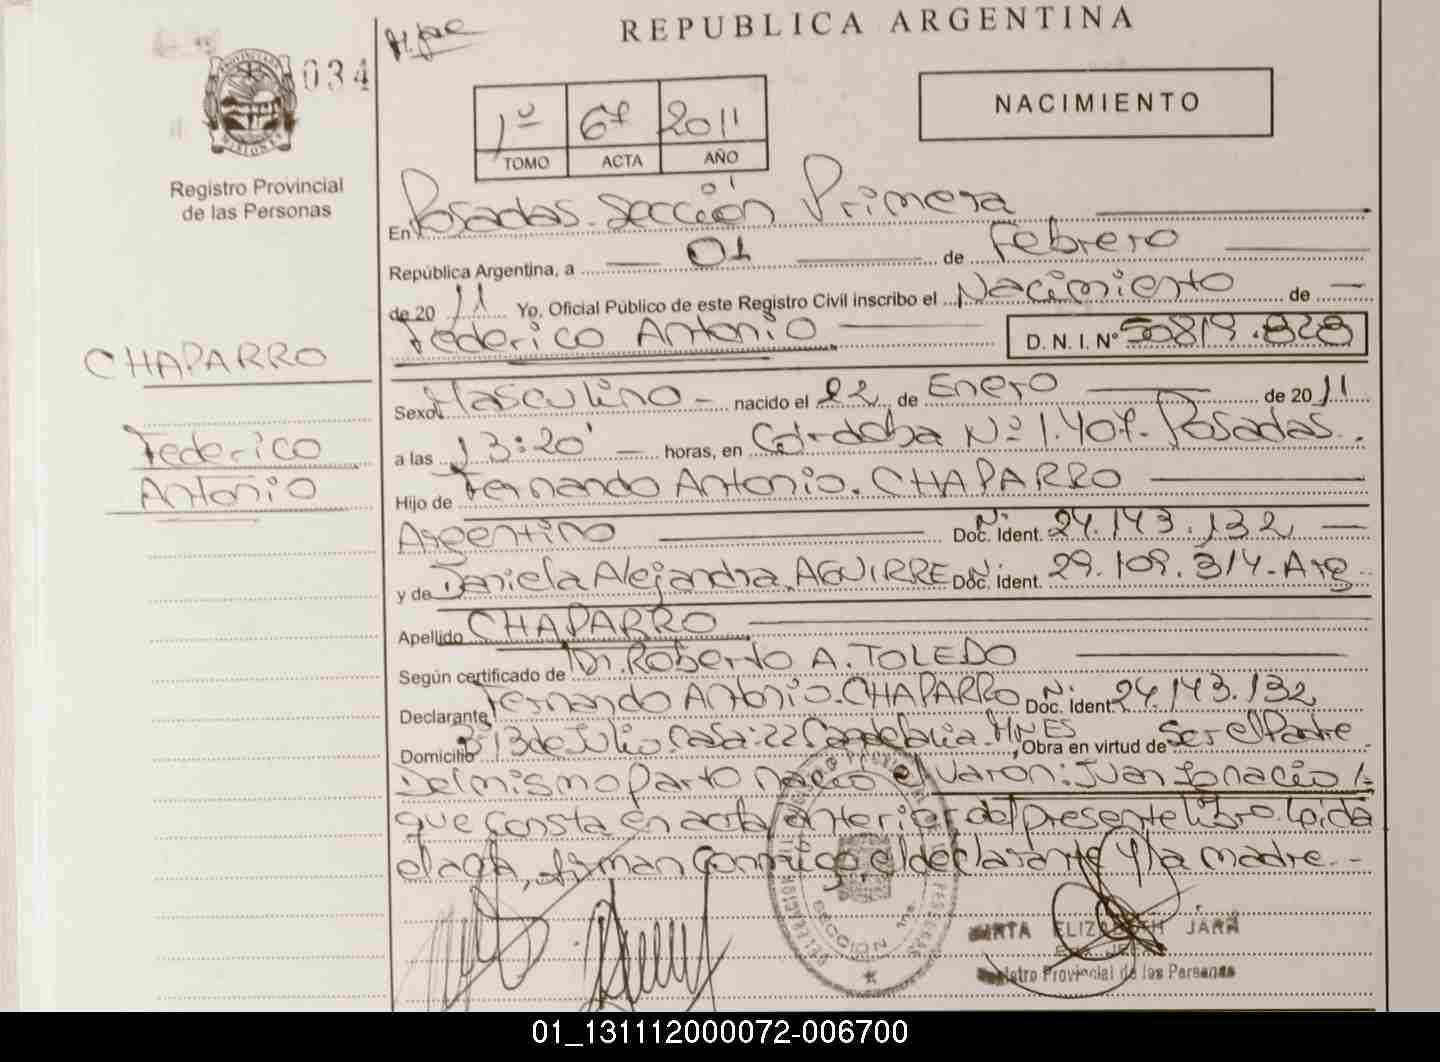 REPUBLICA ARGENTINA
034
NACIMIENTO
1º 67 2011
TOMO ACTA AÑO
Registro Provincial
de las Personas
En Posadas. Sección Primera
República Argentina, a 01 de Febrero
de 2011 Yo, Oficial Público de este Registro Civil inscribo el Nacimiento de
Federico Antonio D. N. I. Nº 50819.828
CHAPARRO
Federico
Antonio
Sexo Masculino - nacido el 22 de Enero de 2011
a las 13:20' horas, en Córdoba Nº 1.407. Posadas.
Hijo de Fernando Antonio. CHAPARRO
Argentino Doc. Ident. Nº 24.143.132
y de Daniela Alejandra. AGUIRRE Doc. Ident. Nº 29.109.314-Arg.
Apellido CHAPARRO
Según certificado de Dr. Roberto A. TOLEDO
Declarante Fernando Antonio. CHAPARRO Doc. Ident. Nº 24.143.132
Domicilio Bº 13 de Julio. Casa: 22 Candelaria. MNES, Obra en virtud de Ser el Padre
Del mismo parto nació el varon: Juan Ignacio
que consta en acta anterior del presente libro. Leida
el acta, firman conmigo, el declarante y la madre. -
SECCION 1ra.
MIRTA ELIZABETH JARA
Registro Provincial de las Personas
01_131112000072-006700